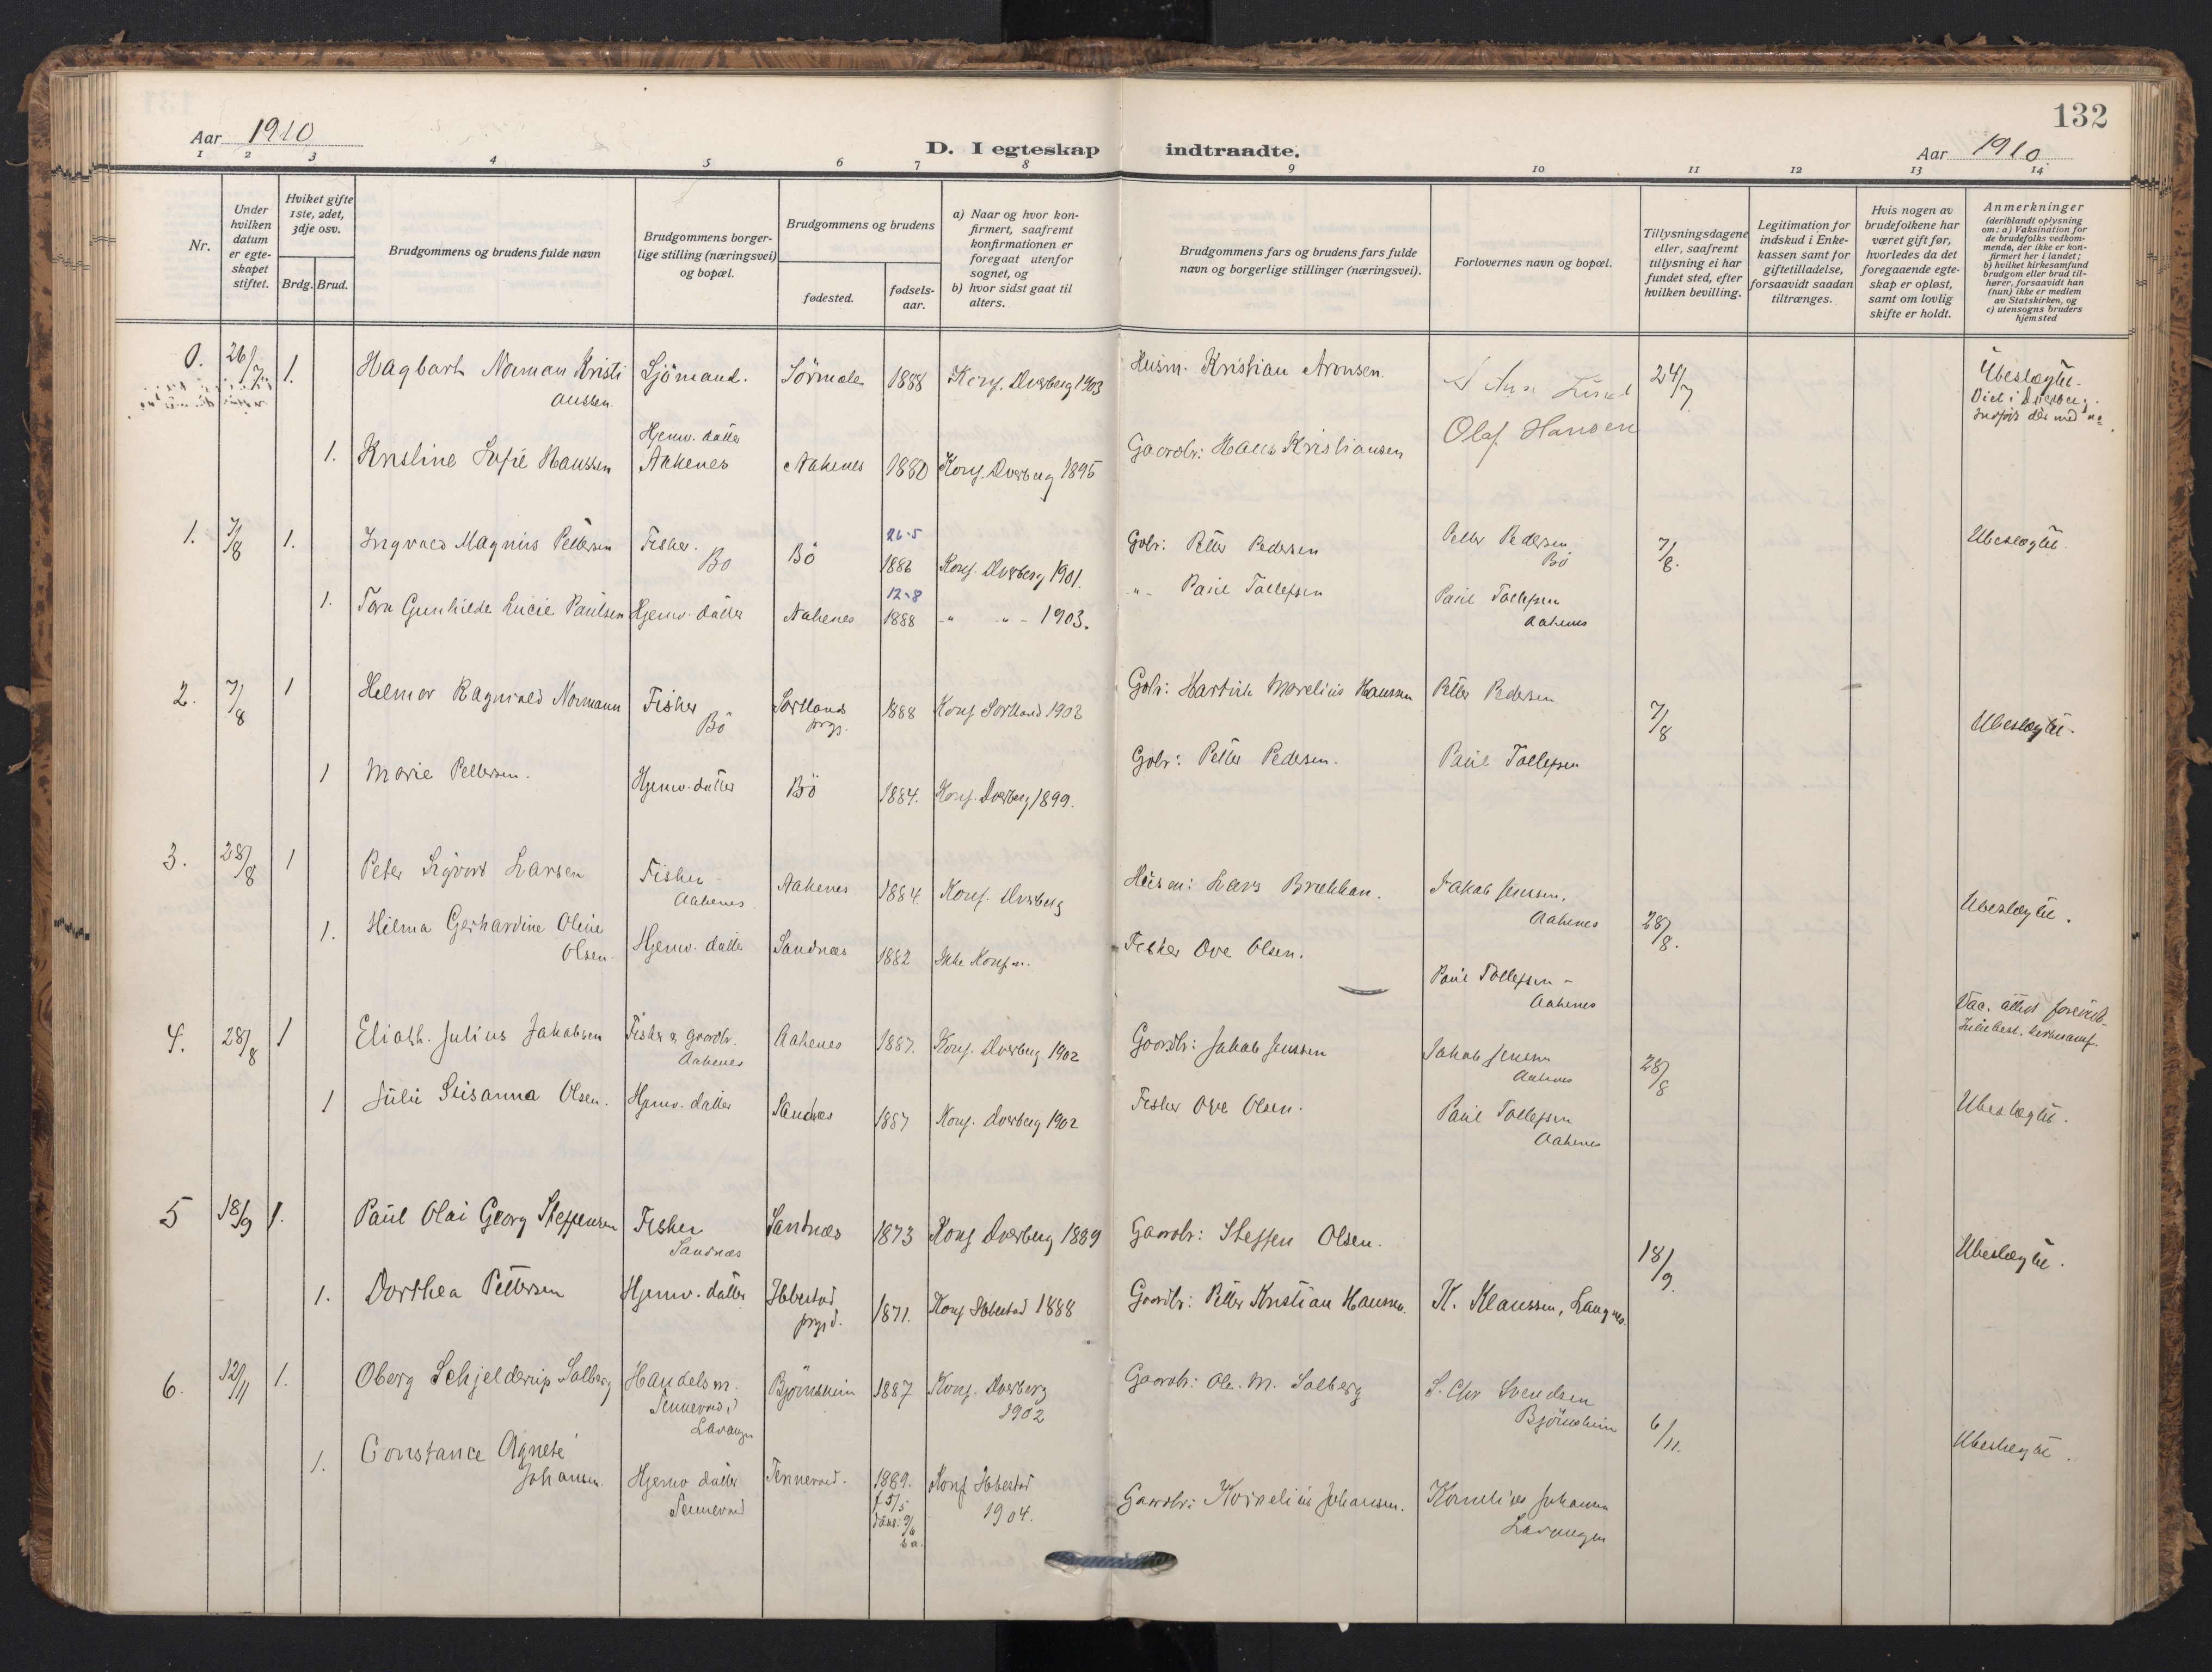 132
Aar 1910
D. I egteskap indtraadte.
Aar 1910.
1 2 3 4 5 6 7 8 9 10 11 12 13 14
Nr.
Under
hvilken
datum
er egte-
skapet
stiftet.
Hviket gifte
1ste, 2det,
3dje osv.
Brdg. Brud.
Brudgommens og brudens fulde navn
Brudgommens borger-
lige stilling (næringsvei)
og bopæl.
Brudgommens og brudens
fødested.
fødsels-
aar.
a) Naar og hvor kon-
firmert, saafremt
konfirmationen er
foregaat utenfor
sognet, og
b) hvor sidst gaat til
alters.
Brudgommens fars og brudens fars fulde
navn og borgerlige stillinger (næringsvei).
Forlovernes navn og bopæl.
Tillysningsdagene
eller, saafremt
tillysning ei har
fundet sted, efter
hvilken bevilling.
Legitimation for
indskud i Enke-
kassen samt for
giftetilladelse,
forsaavidt saadan
tiltrænges.
Hvis nogen av
brudefolkene har
været gift før,
hvorledes da det
foregaaende egte-
skap er opløst,
samt om lovlig
skifte er holdt.
Anmerkninger
(deriblandt oplysning
om: a) Vaksination for
de brudefolks vedkom-
mende, der ikke er kon-
firmert her i landet;
b) hvilket kirkesamfund
brudgom eller brud til-
hører, forsaavidt han
(hun) ikke er medlem
av Statskirken, og
c) utensogns bruders
hjemsted
0. 26/7 1. Hagbart Norman Kristi Sjömand. 1888 Konf. Dverberg 1903 Husm. Kristian Aronsen. 24/7 Ubeslægtet.
anssen.
Viet i Dverberg.
Hjemv. datter Olaf Hansen
1. Kristine Sofie Hanssen Aakenes Aakenes 1880 Konf. Dverberg 1895 Gaardbr: Hans Kristiansen
1. 7/8 1. Ingvald Magnus Pettersen Fisker. Bö Bö 26-5 1886 Konf. Dverberg 1901. Gbr: Petter Pedersen Petter Pedersen Bö 7/8. Ubeslægtet.
1. Tora Gunhilde Lucie Paulsen Hjemv. datter Aakenes 12-8 1888 -"- -"- 1903. -"- Paul Tollefsen Paul Tollefsen Aakenes
2. 7/8 1 Helmer Ragnvald Normann Fisker Bö Sortland prgj. 1888 Konf Sortland 1903 Gbr: Hartvik Marelius Hanssen Petter Pedersen 7/8 Ubeslægtet.
1 Marie Pettersen. Hjemv. datter Bö 1884. Konf. Dverberg 1899. Gbr: Petter Pedersen. Paul Tollefsen
3. 28/8 1 Peter Sigvart Larsen Fisker Aakenes Aakenes 1884 Konf. Dverberg Husm: Lars Brekkan. Jakob Jenssen. Aakenes 28/8. Ubeslægtet.
1. Hilma Gerhardine Oline Olsen. Hjemv. datter Sandnæs 1882 Ikke Konf. Fisker Ove Olsen. Paul Tollefsen - Aakenes
Vac. attest
4. 28/8 1 Eliath. Julius Jakobsen Fisker & gaardbr. Aakenes Aakenes 1887. Konf. Dverberg 1902 Gaardbr: Jakob Jenssen Jakob Jenssen Aakenes 28/8
1 Julie Susanna Olsen. Hjemv. datter Sandnæs 1887 Konf. Dverberg 1902 Fisker Ove Olsen. Paul Tollefsen Aakenes Ubeslægtet.
5 18/9 1. Paul Olai Georg Steffensen Fisker Sandnæs Sandnæs 1873 Konf Dverberg 1889 Gaardbr: Steffen Olsen. 18/9. Ubeslægtet.
1. Dorthea Pettersen Hjemv. datter Ibbestad prgjd. 1871. Konf Ibbestad 1888 Gaardbr: Petter Kristian Hansen. K. Klaussen, Langnes.
6. 12/11 1. Oberg Schjelderup Solberg Handelsm. Tennevoll, Lavangen Bjørnskin 1887 Konf. Dverberg 1902 Gaardbr: Ole. M. Solberg S. Chr Svendsen Björnskin 6/11. Ubeslægtet.
1. Constance Agnete Johansen. Hjemv datter Tennevold Tennevold. 1889. f 5/5 Konf Ibbestad 1904. Gaardbr: Kornelius Johansen. Kornelius Johansen Lavangen